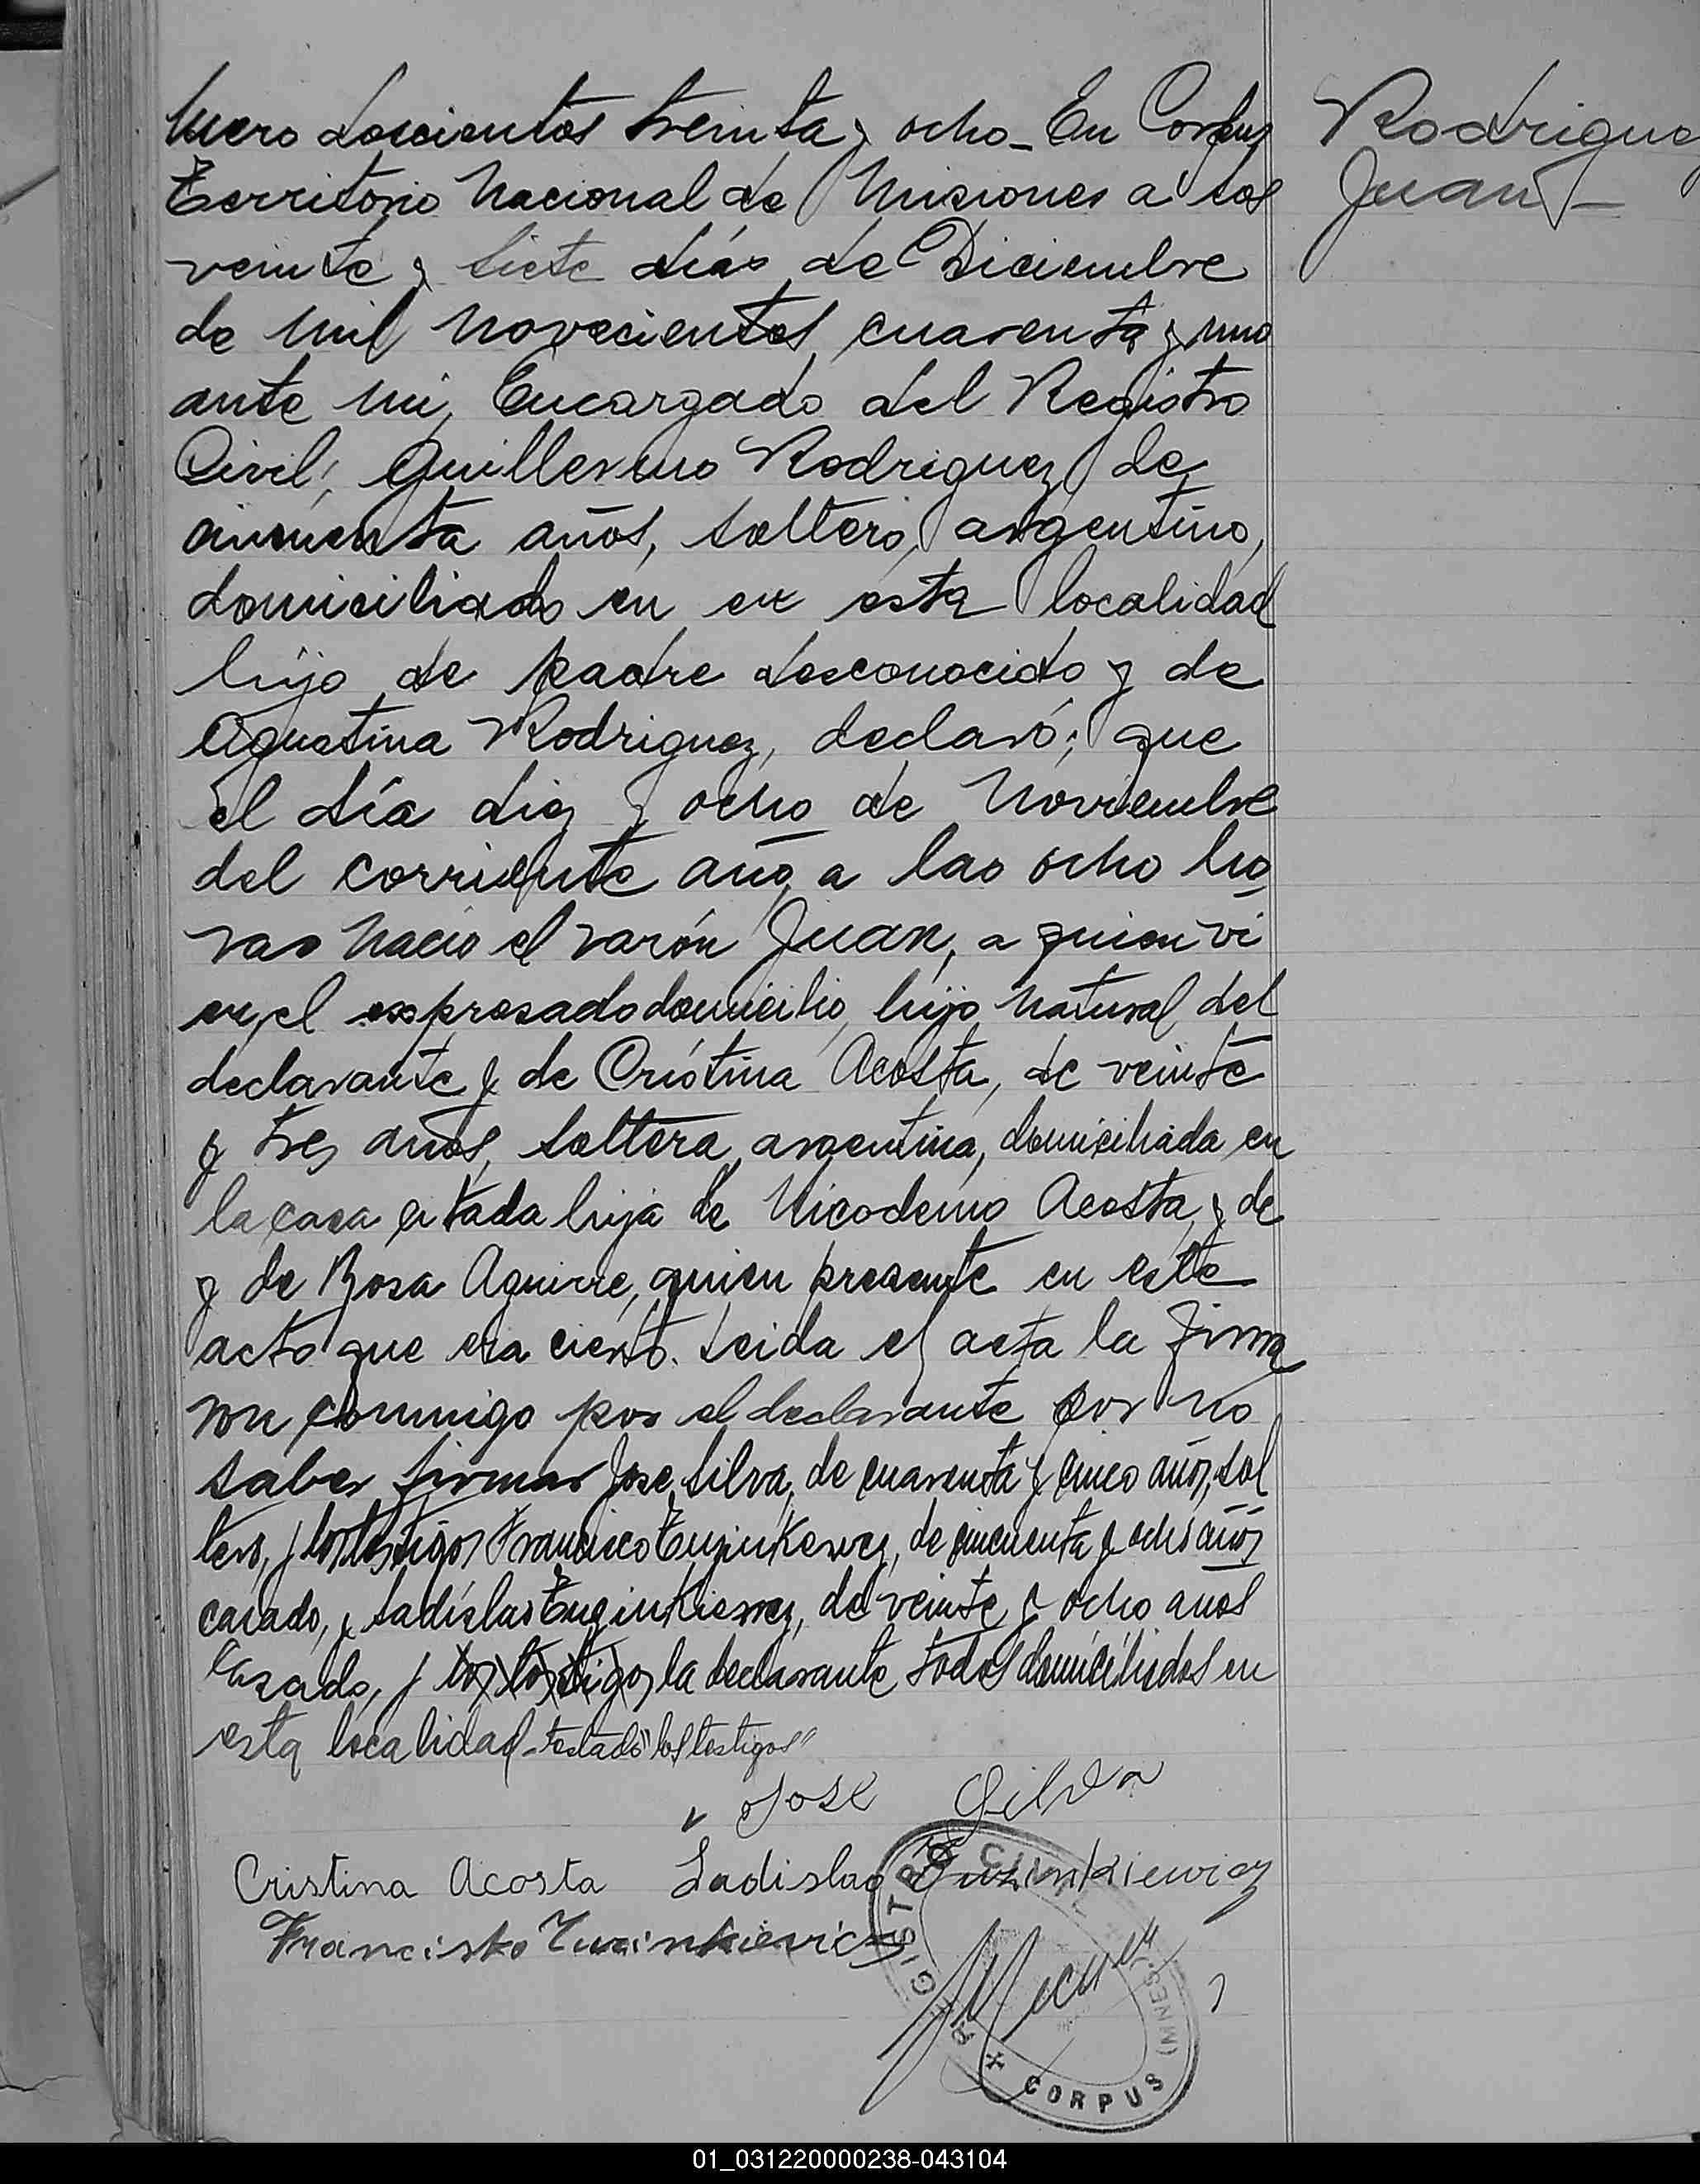 Número doscientos treinta y ocho_ En Corpus
Territorio Nacional de Misiones a los
veinte y siete días de Diciembre
de mil novecientos cuarenta y uno
ante mi, Encargado del Registro
Civil, Guillermo Rodriguez, de
cincuenta años, soltero, argentino,
domiciliado en en esta localidad
hijo de padre desconocido y de
Agustina Rodriguez, declaró; que
el día diez y ocho de Noviembre
del corriente año, a las ocho ho
ras nacio el varón Juan, a quien vi
en el expresado domicilio, hijo natural del
declarante y de Cristina Acosta, de veinte
y tres años, soltera, argentina, domiciliada en
la casa citada hija de Nicodemo Acosta, y de
y de Rosa Aguirre, quien presente en este
acto que era cierto. Leida el acta la firma
ron conmigo por el declarante por no
saber firmar Jose Silva, de cuarenta y cinco años, sol
tero, y los testigos Francisco Euzinkewez, de cincuenta y ocho años
casado, y Ladislao Euzinkiewez, de veinte y ocho años
Casado, y los testigos la declarante todos domiciliados en
esta localidad - testado "los testigos"
Jose Silva
Cristina Acosta Ladislao Euzinkiewicz
Francisko
Rodriguez
Juan -
REGISTRO CIVIL
CORPUS (MNES.)
01_031220000238-043104